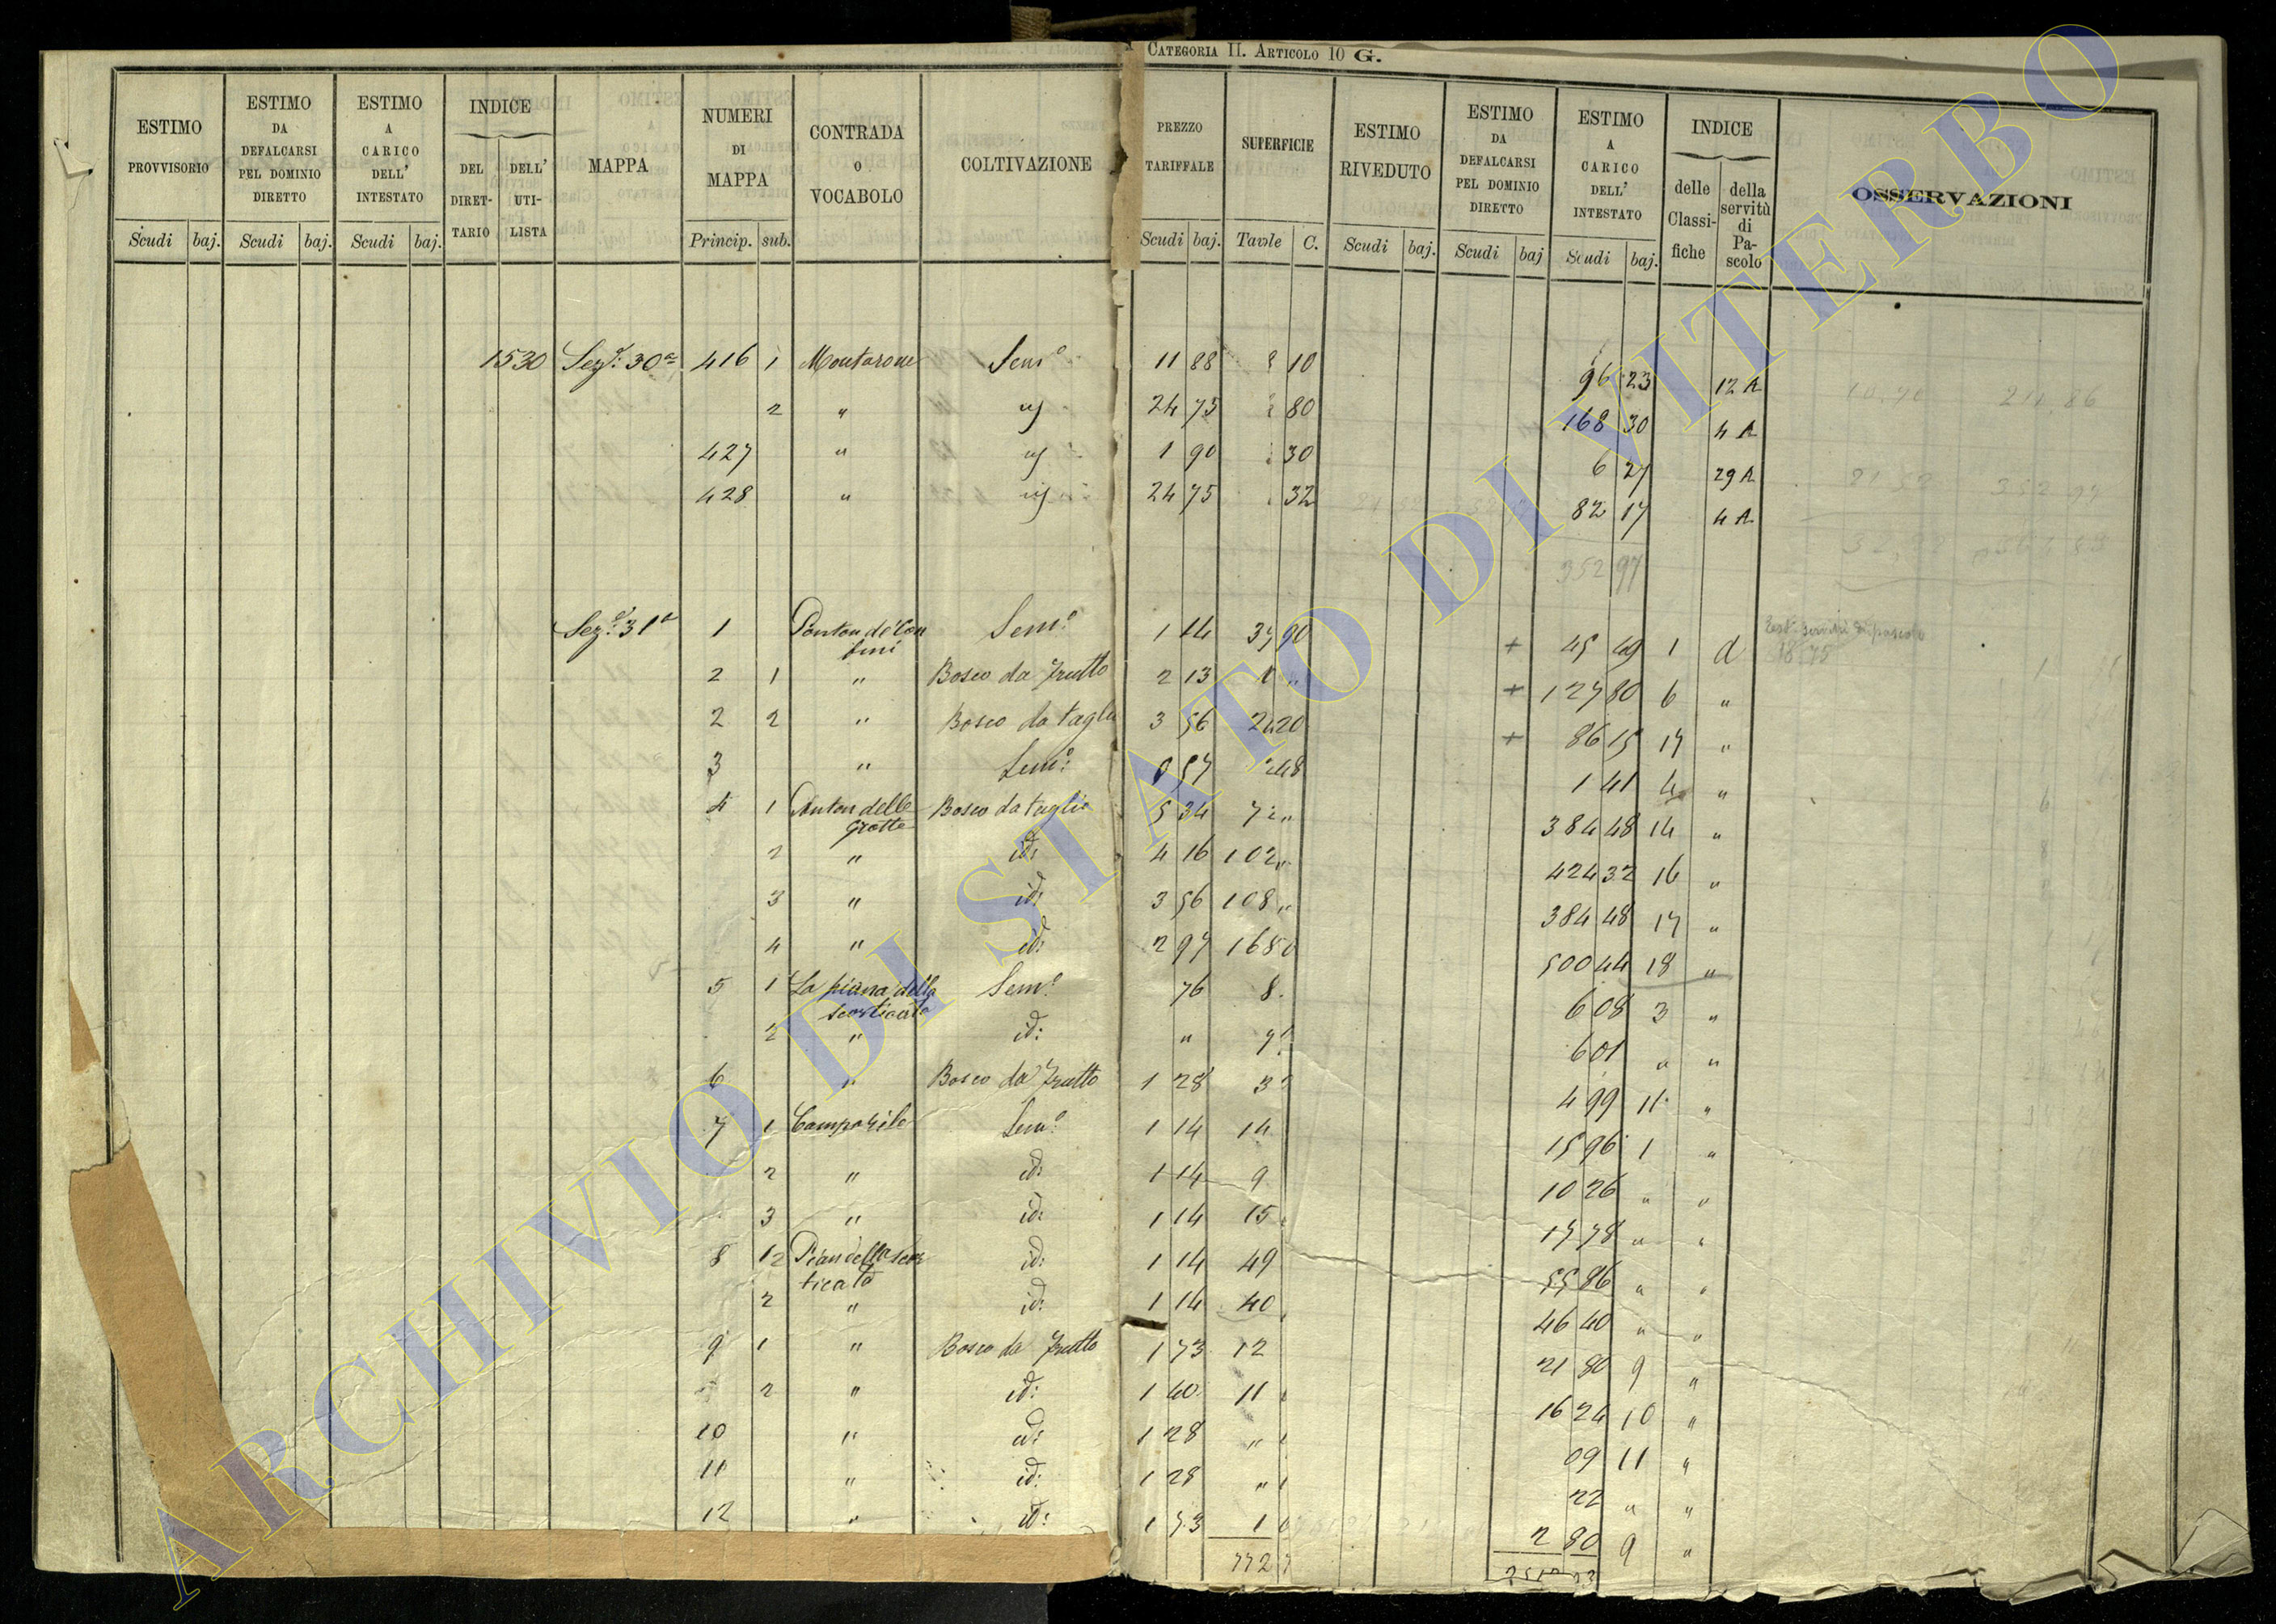 CATEGORIA II. ARTICOLO 10 G.
ESTIMO PROVVISORIO
ESTIMO DA DEFALCARSI PEL DOMINIO DIRETTO
ESTIMO A CARICO DELL' INTESTATO
INDICE
DEL DIRET-TARIO
DELL' UTI-LISTA
MAPPA
NUMERI DI MAPPA
CONTRADA O VOCABOLO
COLTIVAZIONE
PREZZO TARIFFALE
SUPERFICIE
ESTIMO RIVEDUTO
ESTIMO DA DEFALCARSI PEL DOMINIO DIRETTO
ESTIMO A CARICO DELL' INTESTATO
INDICE
delle Classi-fiche
della servitù di Pa-scolo
OSSERVAZIONI
Scudi baj. Scudi baj. Scudi baj. Princip. sub. Scudi baj. Tavle C. Scudi baj. Scudi baj Scudi baj.
1530 Sez.e 30a 416 1 Montarone Sem.o 11 88 10 96 23 12 A
2 " id 24 75 80 168 30 4 A
427 " id 1 90 30 6 27 29 A
428 " id 24 75 32 82 17 4 A
352 97
Sez.e 31a 1 Sem.o 1 14 39 90 + 45 49 1 d
2 1 " Bosco da frutto 2 13 " + 127 80 6 "
2 2 " Bosco da taglio 3 56 24 20 + 86 15 17 "
3 " Sem.o 0 57 2 48 1 41 4 "
4 1 Ponton delle Grotte Bosco da taglio 5 34 72 " 384 48 14 "
2 " id: 4 16 102 " 424 32 16 "
3 " id: 3 56 108 " 384 48 17 "
4 " id: 2 97 168 500 44 18 "
5 1 La piana della scorticata Sem.o 76 8 6 08 3 "
2 " id: " 7 6 01 " "
6 " Bosco da frutto 1 28 3 4 99 11 "
7 1 Camporile Sem.o 1 14 14 15 96 1 "
2 " id: 1 14 9 10 26 " "
3 " id: 1 14 15 17 78 " "
8 1 Pian della scorticata id: 1 14 49 55 86 " "
2 " id: 1 14 40 46 40 " "
9 1 " Bosco da frutto 1 73 12 21 80 9 "
2 " id: 1 40 11 16 24 10 "
10 " id: 1 28 " 09 11 "
11 " id: 1 28 " 22 " "
12 " id: 1 73 1 2 80 9 "
772
ARCHIVIO DI STATO DI VITERBO